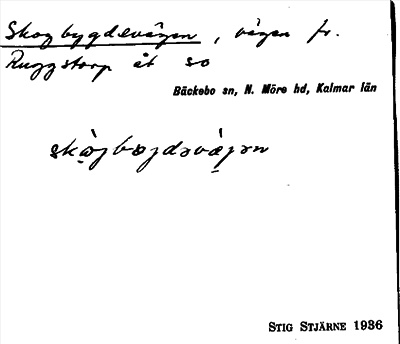 Skogbygdevägen, vägen fr.
Ruggstorp åt so
Bäckebo sn, N. Möre hd, Kalmar län
STIG STJÄRNE 1936